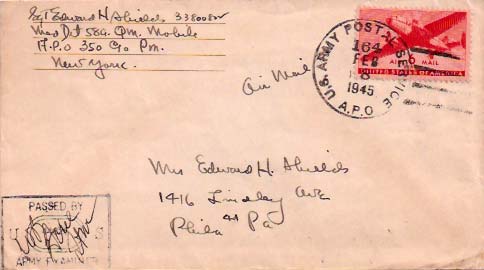 Sgt Edward H. Shields
Det 584 Qm. Mobile
A.P.O 350 C/o Pm.
New York.
Air Mail
U.S. ARMY POSTAL SERVICE
164
FEB
8
1945
A.P.O.
AIR MAIL
UNITED STATES OF AMERICA
Mrs Edward H. Shields
1416 Lindley Ave
Phila 41 Pa
PASSED BY
U S
ARMY EXAMINER